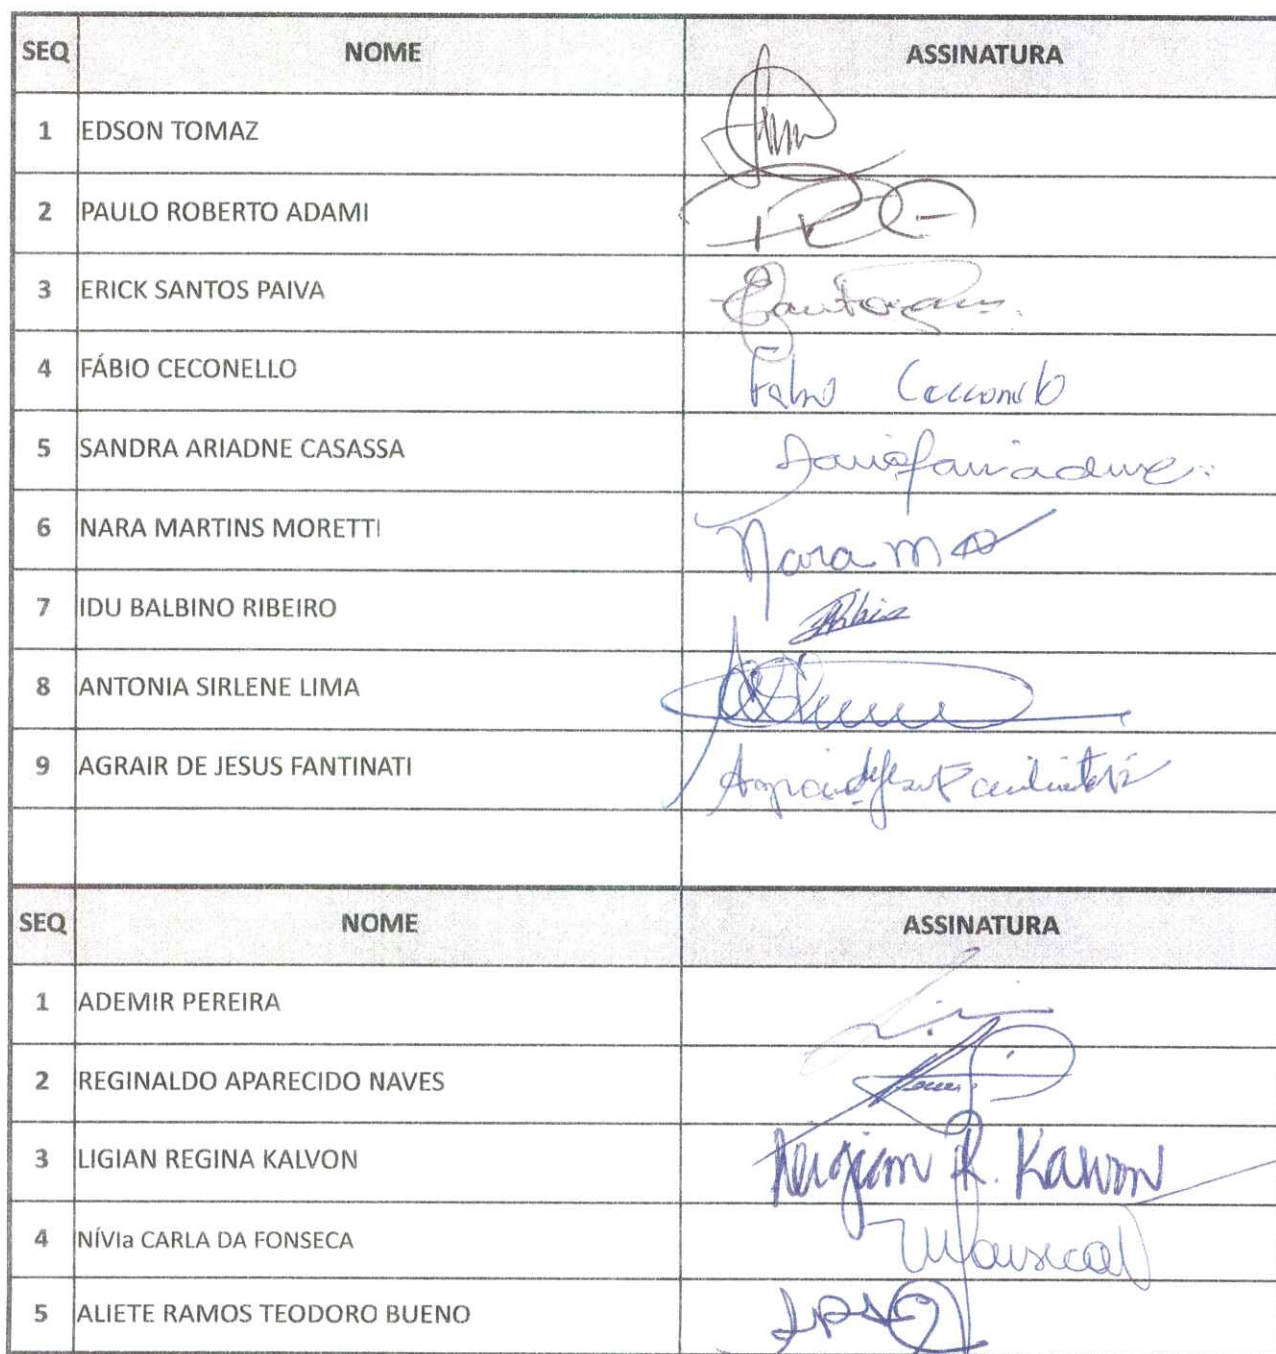 SEQ NOME ASSINATURA
1 EDSON TOMAZ
2 PAULO ROBERTO ADAMI
3 ERICK SANTOS PAIVA
4 FÁBIO CECONELLO Fabio Cecconello
5 SANDRA ARIADNE CASASSA
6 NARA MARTINS MORETTI Nara M
7 IDU BALBINO RIBEIRO
8 ANTONIA SIRLENE LIMA
9 AGRAIR DE JESUS FANTINATI
SEQ NOME ASSINATURA
1 ADEMIR PEREIRA
2 REGINALDO APARECIDO NAVES
3 LIGIAN REGINA KALVON Ligian R. Kalvon
4 NÍVIa CARLA DA FONSECA
5 ALIETE RAMOS TEODORO BUENO